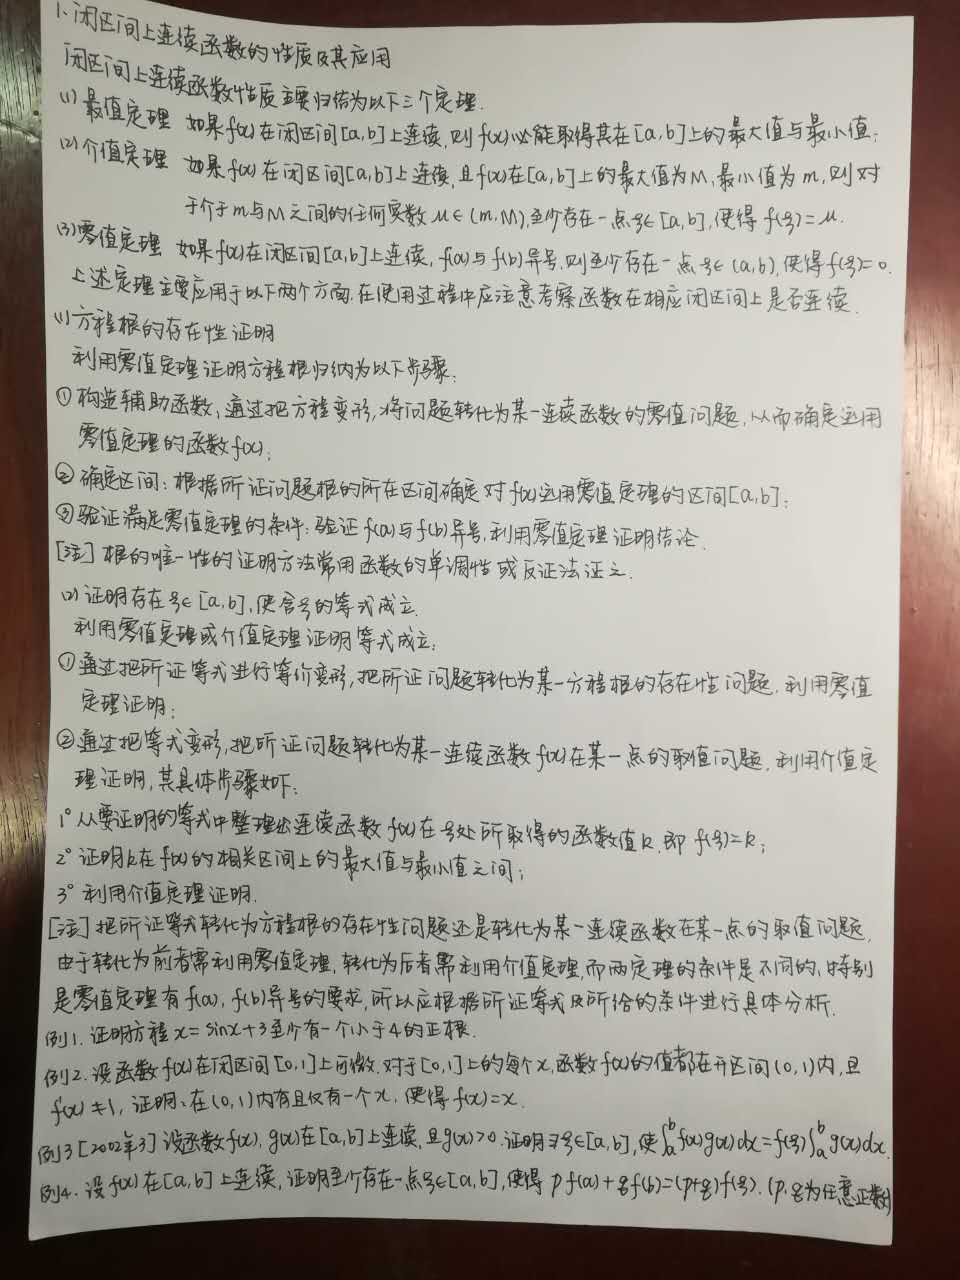 1.闭区间上连续函数的性质及其应用
闭区间上连续函数性质主要归结为以下三个定理.
(1)最值定理 如果f(x)在闭区间[a,b]上连续,则f(x)必能取得其在[a,b]上的最大值与最小值;
(2)介值定理 如果f(x)在闭区间[a,b]上连续,且f(x)在[a,b]上的最大值为M,最小值为m,则对
于介于m与M之间的任何实数μ∈(m,M),至少存在一点ξ∈[a,b],使得f(ξ)=μ.
(3)零值定理 如果f(x)在闭区间[a,b]上连续,f(a)与f(b)异号,则至少存在一点ξ∈(a,b),使得f(ξ)=0.
上述定理主要应用于以下两个方面,在使用过程中应注意考察函数在相应闭区间上是否连续.
(1)方程根的存在性证明
利用零值定理证明方程根归纳为以下步骤:
①构造辅助函数,通过把方程变形,将问题转化为某一连续函数的零值问题,从而确定运用
零值定理的函数f(x);
②确定区间:根据所证问题根的所在区间确定对f(x)运用零值定理的区间[a,b];
③验证满足零值定理的条件:验证f(a)与f(b)异号,利用零值定理证明结论.
[注]根的唯一性的证明方法常用函数的单调性或反证法证之.
(2)证明存在ξ∈[a,b],使含ξ的等式成立.
利用零值定理或介值定理证明等式成立:
①通过把所证等式进行等价变形,把所证问题转化为某一方程根的存在性问题,利用零值
定理证明;
②通过把等式变形,把所证问题转化为某一连续函数f(x)在某一点的取值问题,利用介值定
理证明,其具体步骤如下:
1°从要证明的等式中整理出连续函数f(x)在ξ处所取得的函数值k,即f(ξ)=k;
2°证明k在f(x)的相关区间上的最大值与最小值之间;
3°利用介值定理证明.
[注]把所证等式转化为方程根的存在性问题还是转化为某一连续函数在某一点的取值问题,
由于转化为前者需利用零值定理,转化为后者需利用介值定理,而两定理的条件是不同的,特别
是零值定理有f(a),f(b)异号的要求,所以应根据所证等式及所给的条件进行具体分析.
例1.证明方程x=sinx+3至少有一个小于4的正根.
例2.设函数f(x)在闭区间[0,1]上可微,对于[0,1]上的每个x,函数f(x)的值都在开区间(0,1)内,且
f'(x)≠1,证明:在(0,1)内有且仅有一个x,使得f(x)=x.
例3[2002年3]设函数f(x),g(x)在[a,b]上连续,且g(x)>0.证明∃ξ∈[a,b],使∫_a^b f(x)g(x)dx=f(ξ)∫_a^b g(x)dx.
例4.设f(x)在[a,b]上连续,证明至少存在一点ξ∈[a,b],使得pf(a)+qf(b)=(p+q)f(ξ).(p,q为任意正数)